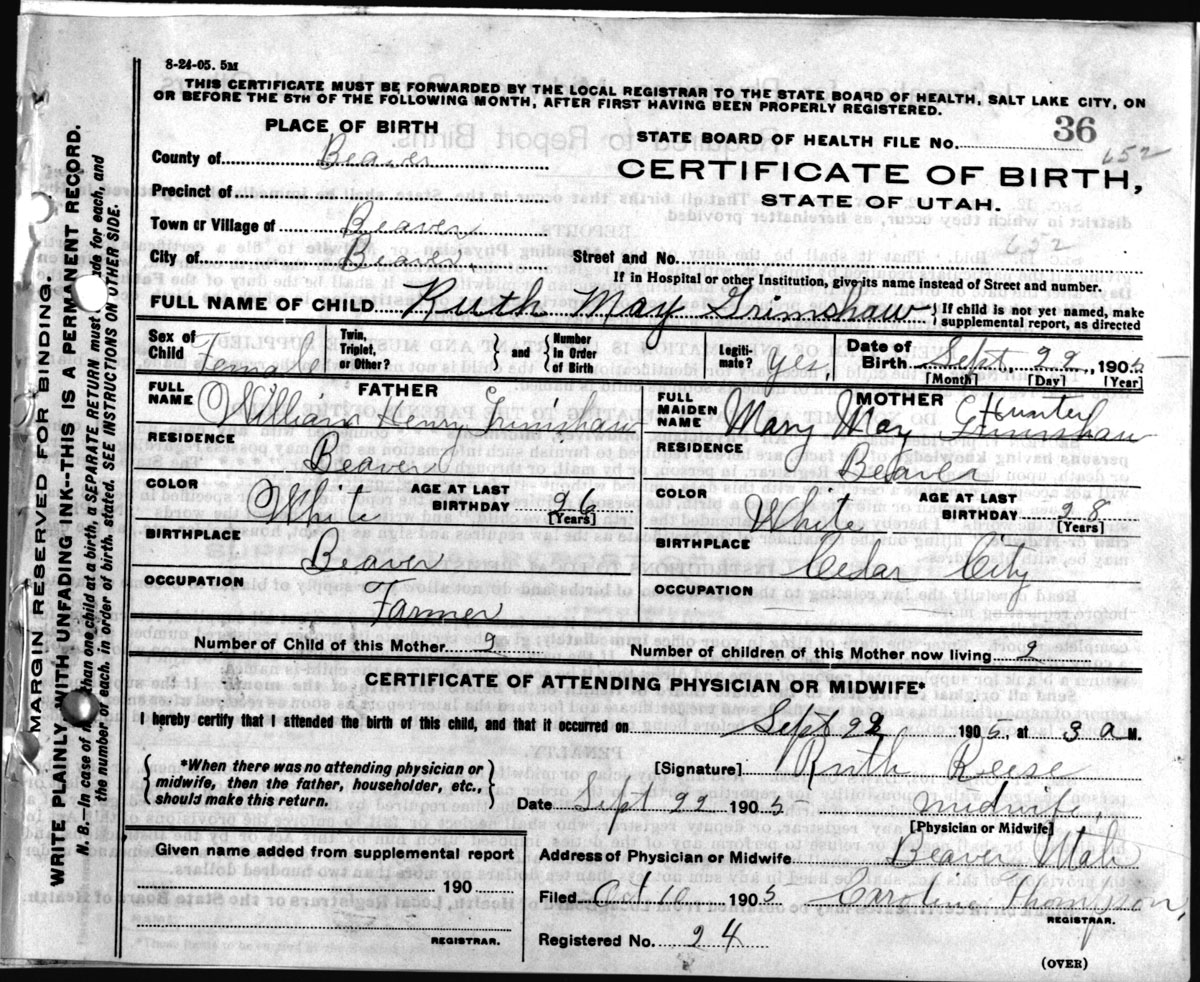 8-24-05. 5M
THIS CERTIFICATE MUST BE FORWARDED BY THE LOCAL REGISTRAR TO THE STATE BOARD OF HEALTH, SALT LAKE CITY, ON
OR BEFORE THE 5TH OF THE FOLLOWING MONTH, AFTER FIRST HAVING BEEN PROPERLY REGISTERED.
PLACE OF BIRTH
STATE BOARD OF HEALTH FILE NO. 36
652
County of Beaver
CERTIFICATE OF BIRTH,
Precinct of
STATE OF UTAH.
Town or Village of Beaver
652
City of Beaver
Street and No.
If in Hospital or other Institution, give its name instead of Street and number.
FULL NAME OF CHILD Ruth May Grimshaw } If child is not yet named, make supplemental report, as directed
Sex of Child Female Twin, Triplet, or Other? } and { Number In Order of Birth Legiti- mate? yes, Date of Birth Sept, 22, 1905
[Month] [Day] [Year]
FATHER
MOTHER
FULL NAME William Henry Grimshaw
FULL MAIDEN NAME Mary May Hunter Grimshaw
RESIDENCE Beaver
RESIDENCE Beaver
COLOR White AGE AT LAST BIRTHDAY 26 [Years]
COLOR White AGE AT LAST BIRTHDAY 28 [Years]
BIRTHPLACE Beaver
BIRTHPLACE Cedar City
OCCUPATION Farmer
OCCUPATION
Number of Child of this Mother 2
Number of children of this Mother now living 2
CERTIFICATE OF ATTENDING PHYSICIAN OR MIDWIFE*
I hereby certify that I attended the birth of this child, and that it occurred on Sept 22 1905 at 3 a M.
{ *When there was no attending physician or
midwife, then the father, householder, etc.,
should make this return. }
[Signature] Ruth Reese
Date Sept 22 1905 midwife,
[Physician or Midwife]
Given name added from supplemental report
190
REGISTRAR.
Address of Physician or Midwife Beaver Utah
Filed Oct 10 1905 Caroline Thompson,
REGISTRAR.
Registered No. 24
(OVER)
MARGIN RESERVED FOR BINDING.
WRITE PLAINLY WITH UNFADING INK--THIS IS A PERMANENT RECORD.
N. B.--In case of than one child at a birth, a SEPARATE RETURN must ade for each, and
the number of each. in order of birth. stated. SEE INSTRUCTIONS ON OTHER SIDE.